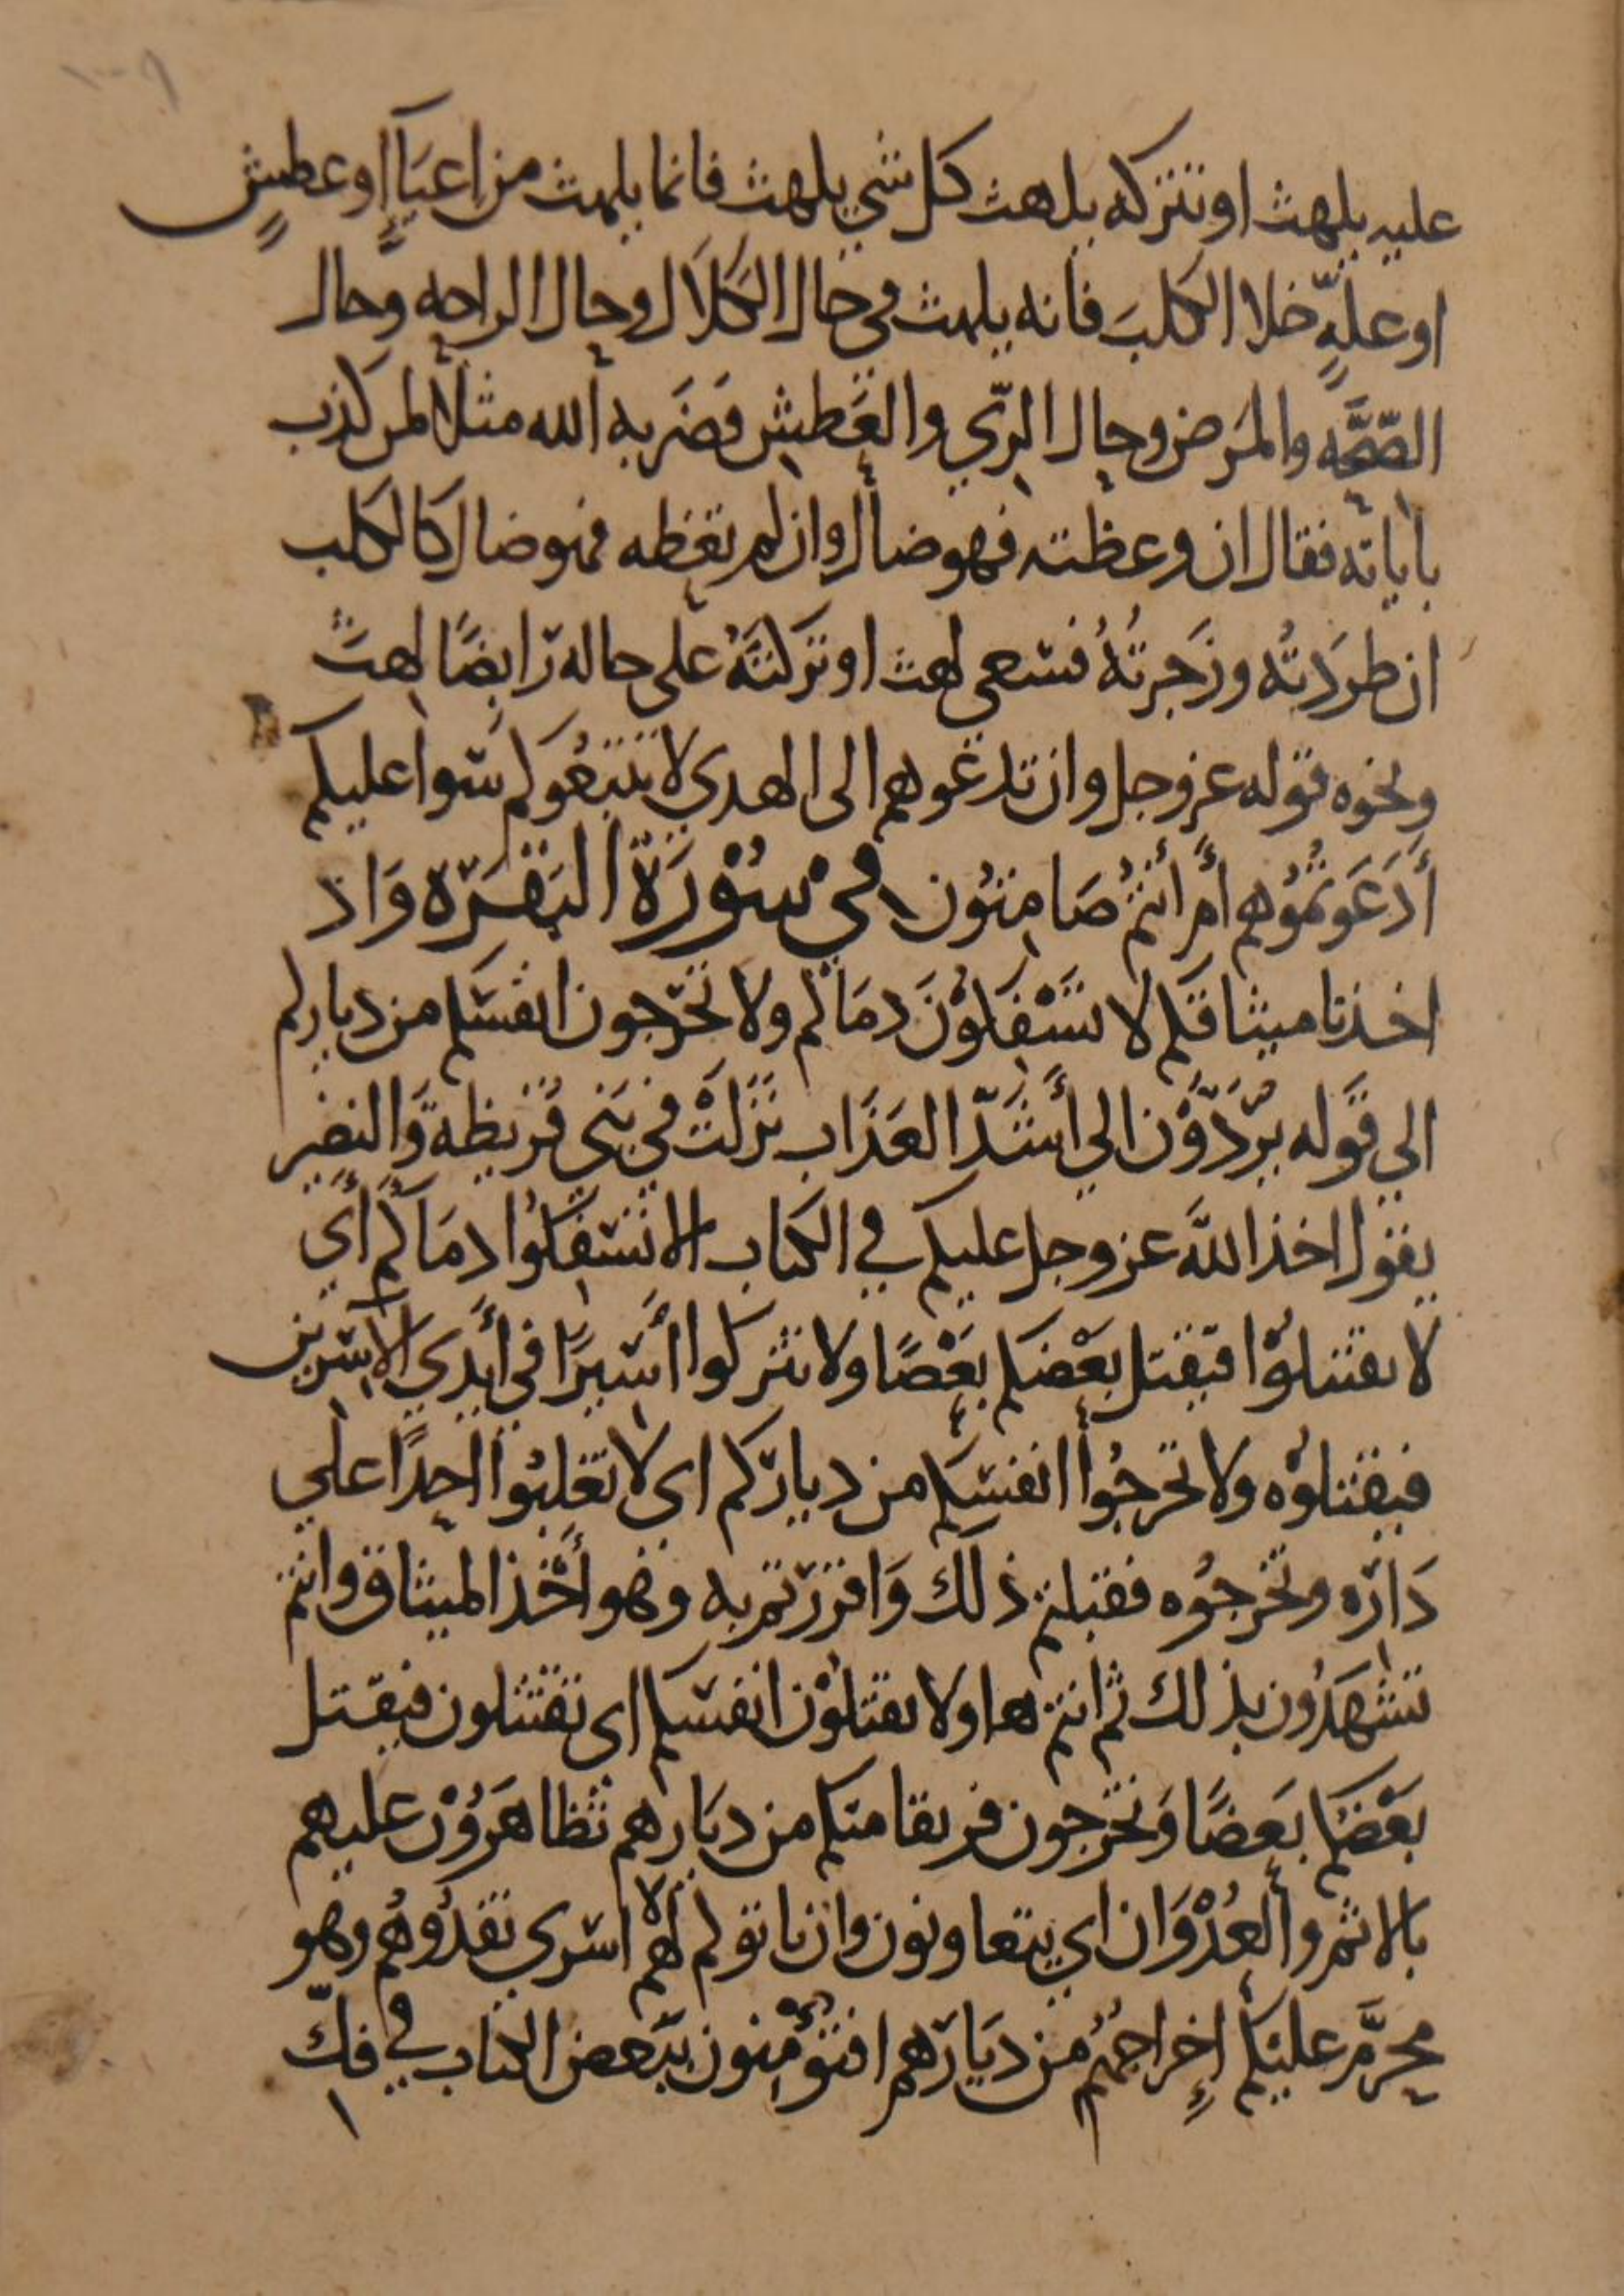 ١٠٩
عليه يلهث او تتركه يلهث كل شي يلهث فانما يلهث من اعيآءٍ او عطشٍ
او علّةٍ خلا الكلبَ فانه يلهث في حال الكَلاَل وحال الراحه وحال
الصّحَّه والمَرض وحال الرّي والعَطش فضَربه الله مثلاً لمن كذب
باياته فقال ان وعظته فهو ضال وان لم تعظه فهو ضال كالكلب
ان طردَته وزَجرتُهُ فسعي لهث او تركتَهُ على حاله رابضًا لهثَ
ونحوه قوله عز وجل وان تدعوهم الى الهدي لا يتبعُوكم سوا عليكم
أَدَعَوتمُوُهم أم أنتمُ صَامِتُون في سُوْرَة البَقَرَة وَاذ
اخذنا ميثاقكم لا تسْفكوْنَ دمَاكم ولا تخرجون انفسَكم من دياركم
الي قوله يُرَدّوْن الي أَشَدّ العَذَاب نَزَلَتْ في بَني قُريظة وَالنضير
يقول اخذ اللهَ عز وجل عليكم في الكتاب الا تسفكوُا دمَاكم أَي
لا تقتتلوْا فيقتل بَعْضكم بعْضًا ولا تتركوا أسَيرًا في أَيدي الاسرين
فيقتلوْه ولا تخرجوُا انفسَكم من دياركم اي لا تغلبوُا احدًا علي
دَاره وتخرجوُه فقبلتم ذلكَ وَاقررتم به وهو أَخْذ الميثاق وانتم
تشهَدُون بذلك ثم انتم هاولا تقتلوْن انفسكم اي تقتتلون فيقتل
بَعْضكم بعَضًا وَتخرجون فريقا منكم من ديَارهم تظاهَروْن عليهم
بالاثم والعُدْوَان اي يتعاونون وان ياتوكم لاهم اسري تفدُوُهُم وهو
محرَّم عليكم إِخراجهُم من ديَارهم افتؤمنون ببَعض الكتاب في فكّ